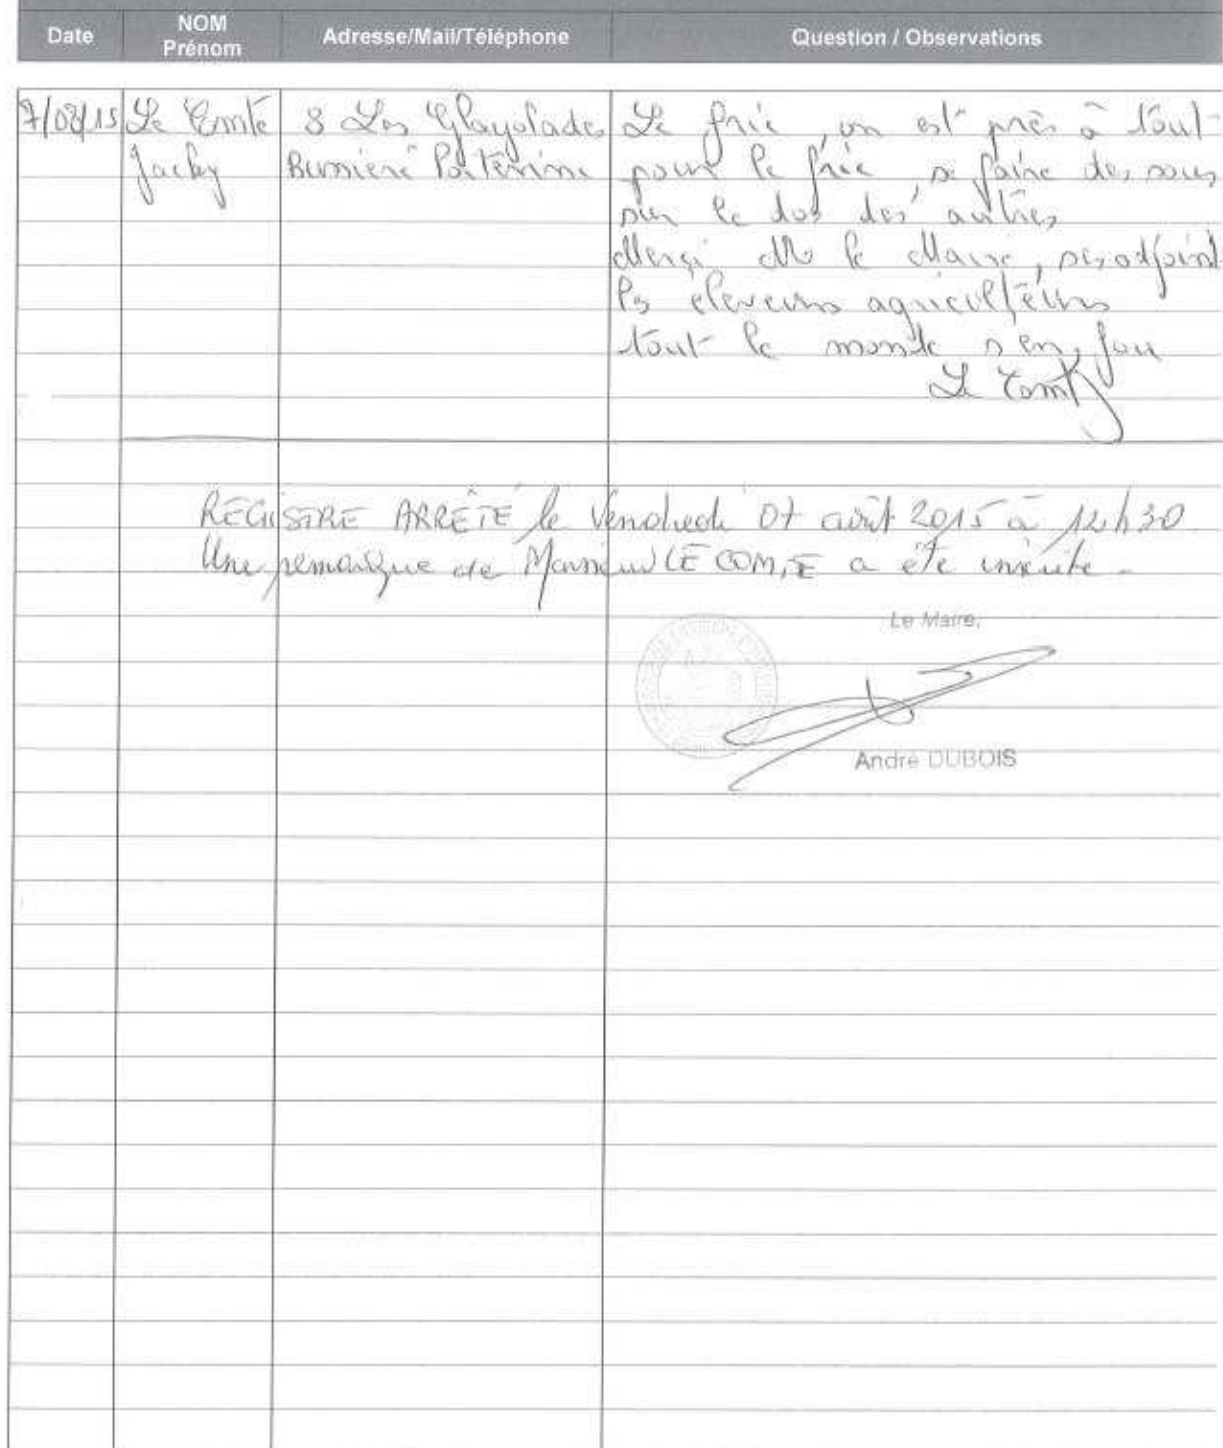 Date NOM Prénom Adresse/Mail/Téléphone Question / Observations
7/08/15 Le Comte 8 Les Glayolades Le fric, on est près à tout
Jacky pour le fric, se faire des sous
sur le dos des autres
Merçi Mr le Maire, ses adjoint
les éleveurs agriculteurs
tout le monde s'en fou
Le Comte
REGISTRE ARRÊTÉ le Vendredi 07 août 2015 à 12h30
Une remarque de Monsieur LE COMTE a été inscrite.
Le Maire,
André DUBOIS